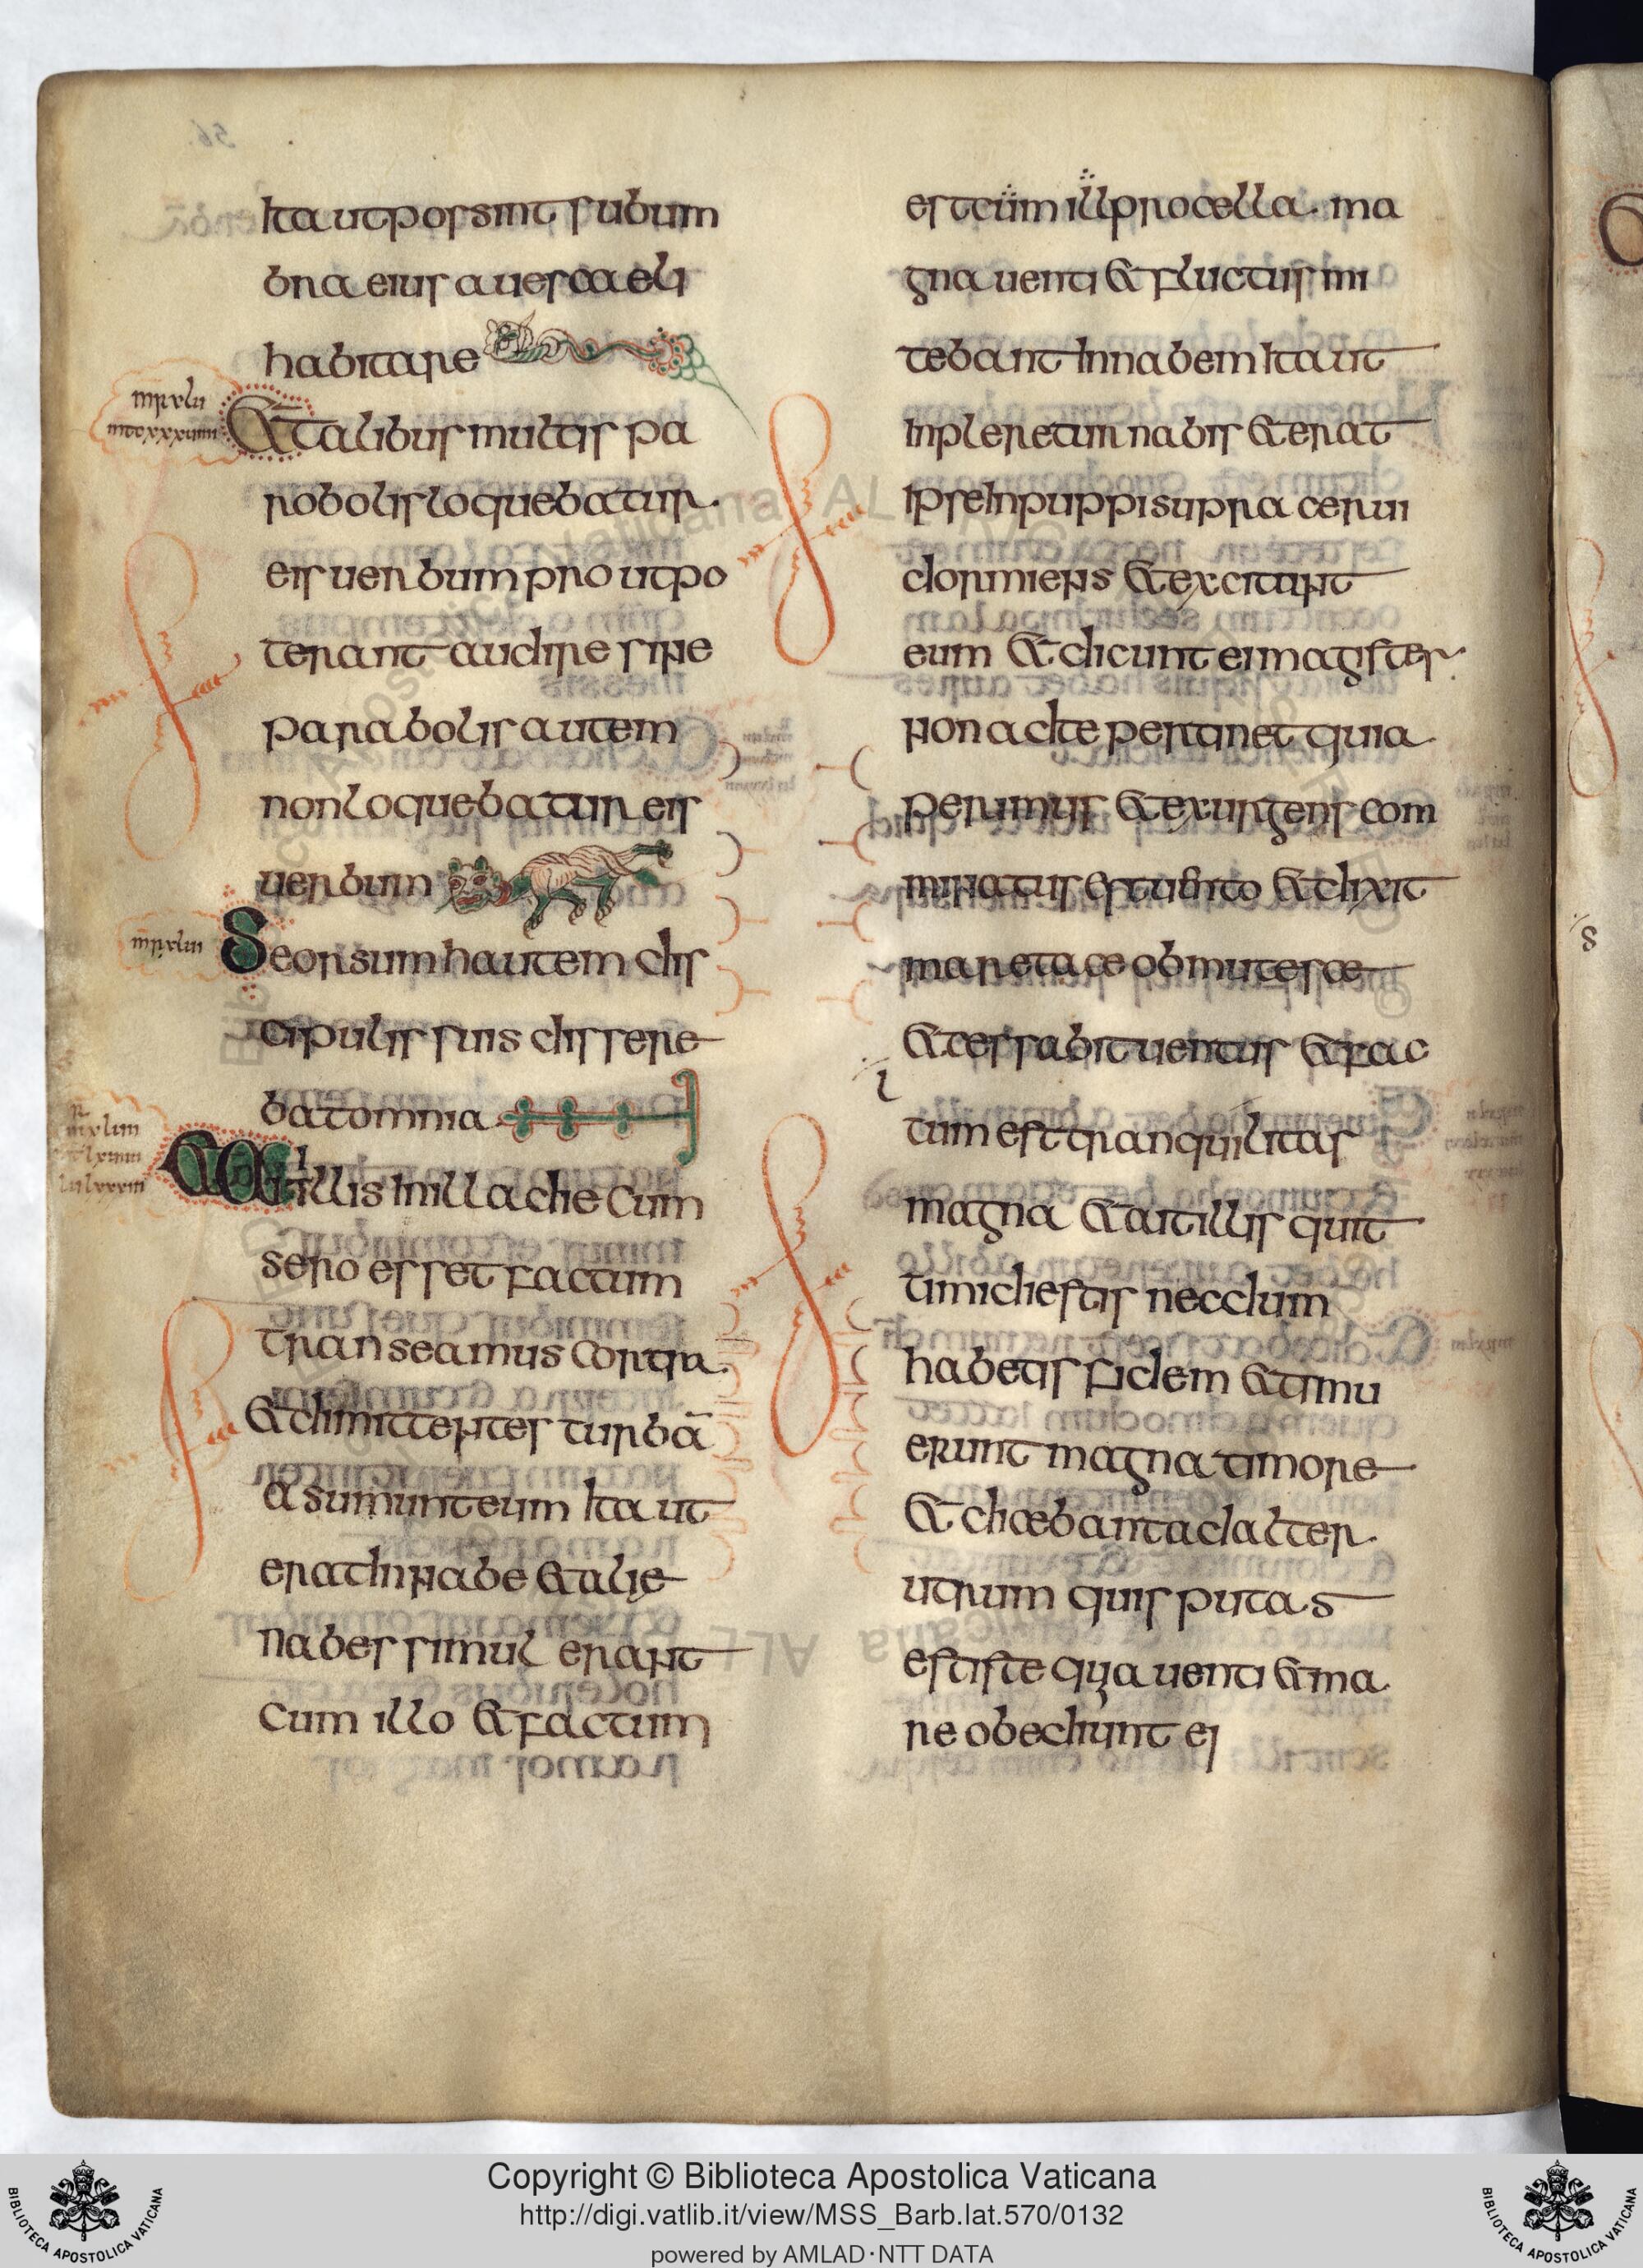 Ita ut possint sub um
bra eius aues caeli
habitare
mr xlii
mt cxxxuiiii
Et talibus multis pa
robolis loquebatur
eis uerbum pro ut po
terant audire sine
parabolis autem
non loquebatur eis
uerbum
mr xliii
Seorsum hautem dis
cipulis suis dissere
bat omnia
mr xluii
mt lxuiiii
lu lxxxiii
Et ait illis In illa die cum
sero esset factum
transeamus contra
Et dimittentes turbā
asumunt eum Ita ut
erat In nabe et alie
nabes simul erant
cum illo et factum
est cum ill procella ma
gna uenti et fluctus mi
tebant In nabem Ita ut
Inpleretur nabis et erat
Ipse In puppi supra cerui
dormiens et excitant
eum et dicunt ei magister
non ad te pertinet quia
perimus et exurgens com
minatus est uento et dixit
mare tace obmutesce
et cessabit uentus et fac
tum est tranquilitas
magna et ait illis quit
timidi estis necdum
habetis fidem et timu
erunt magna timore
et dicebant ad alter
utrum quis putas
est iste quia uenti et ma
re obediunt ei
Copyright © Biblioteca Apostolica Vaticana
http://digi.vatlib.it/view/MSS_Barb.lat.570/0132
powered by AMLAD·NTT DATA
BIBLIOTECA APOSTOLICA VATICANA
BIBLIOTECA APOSTOLICA VATICANA